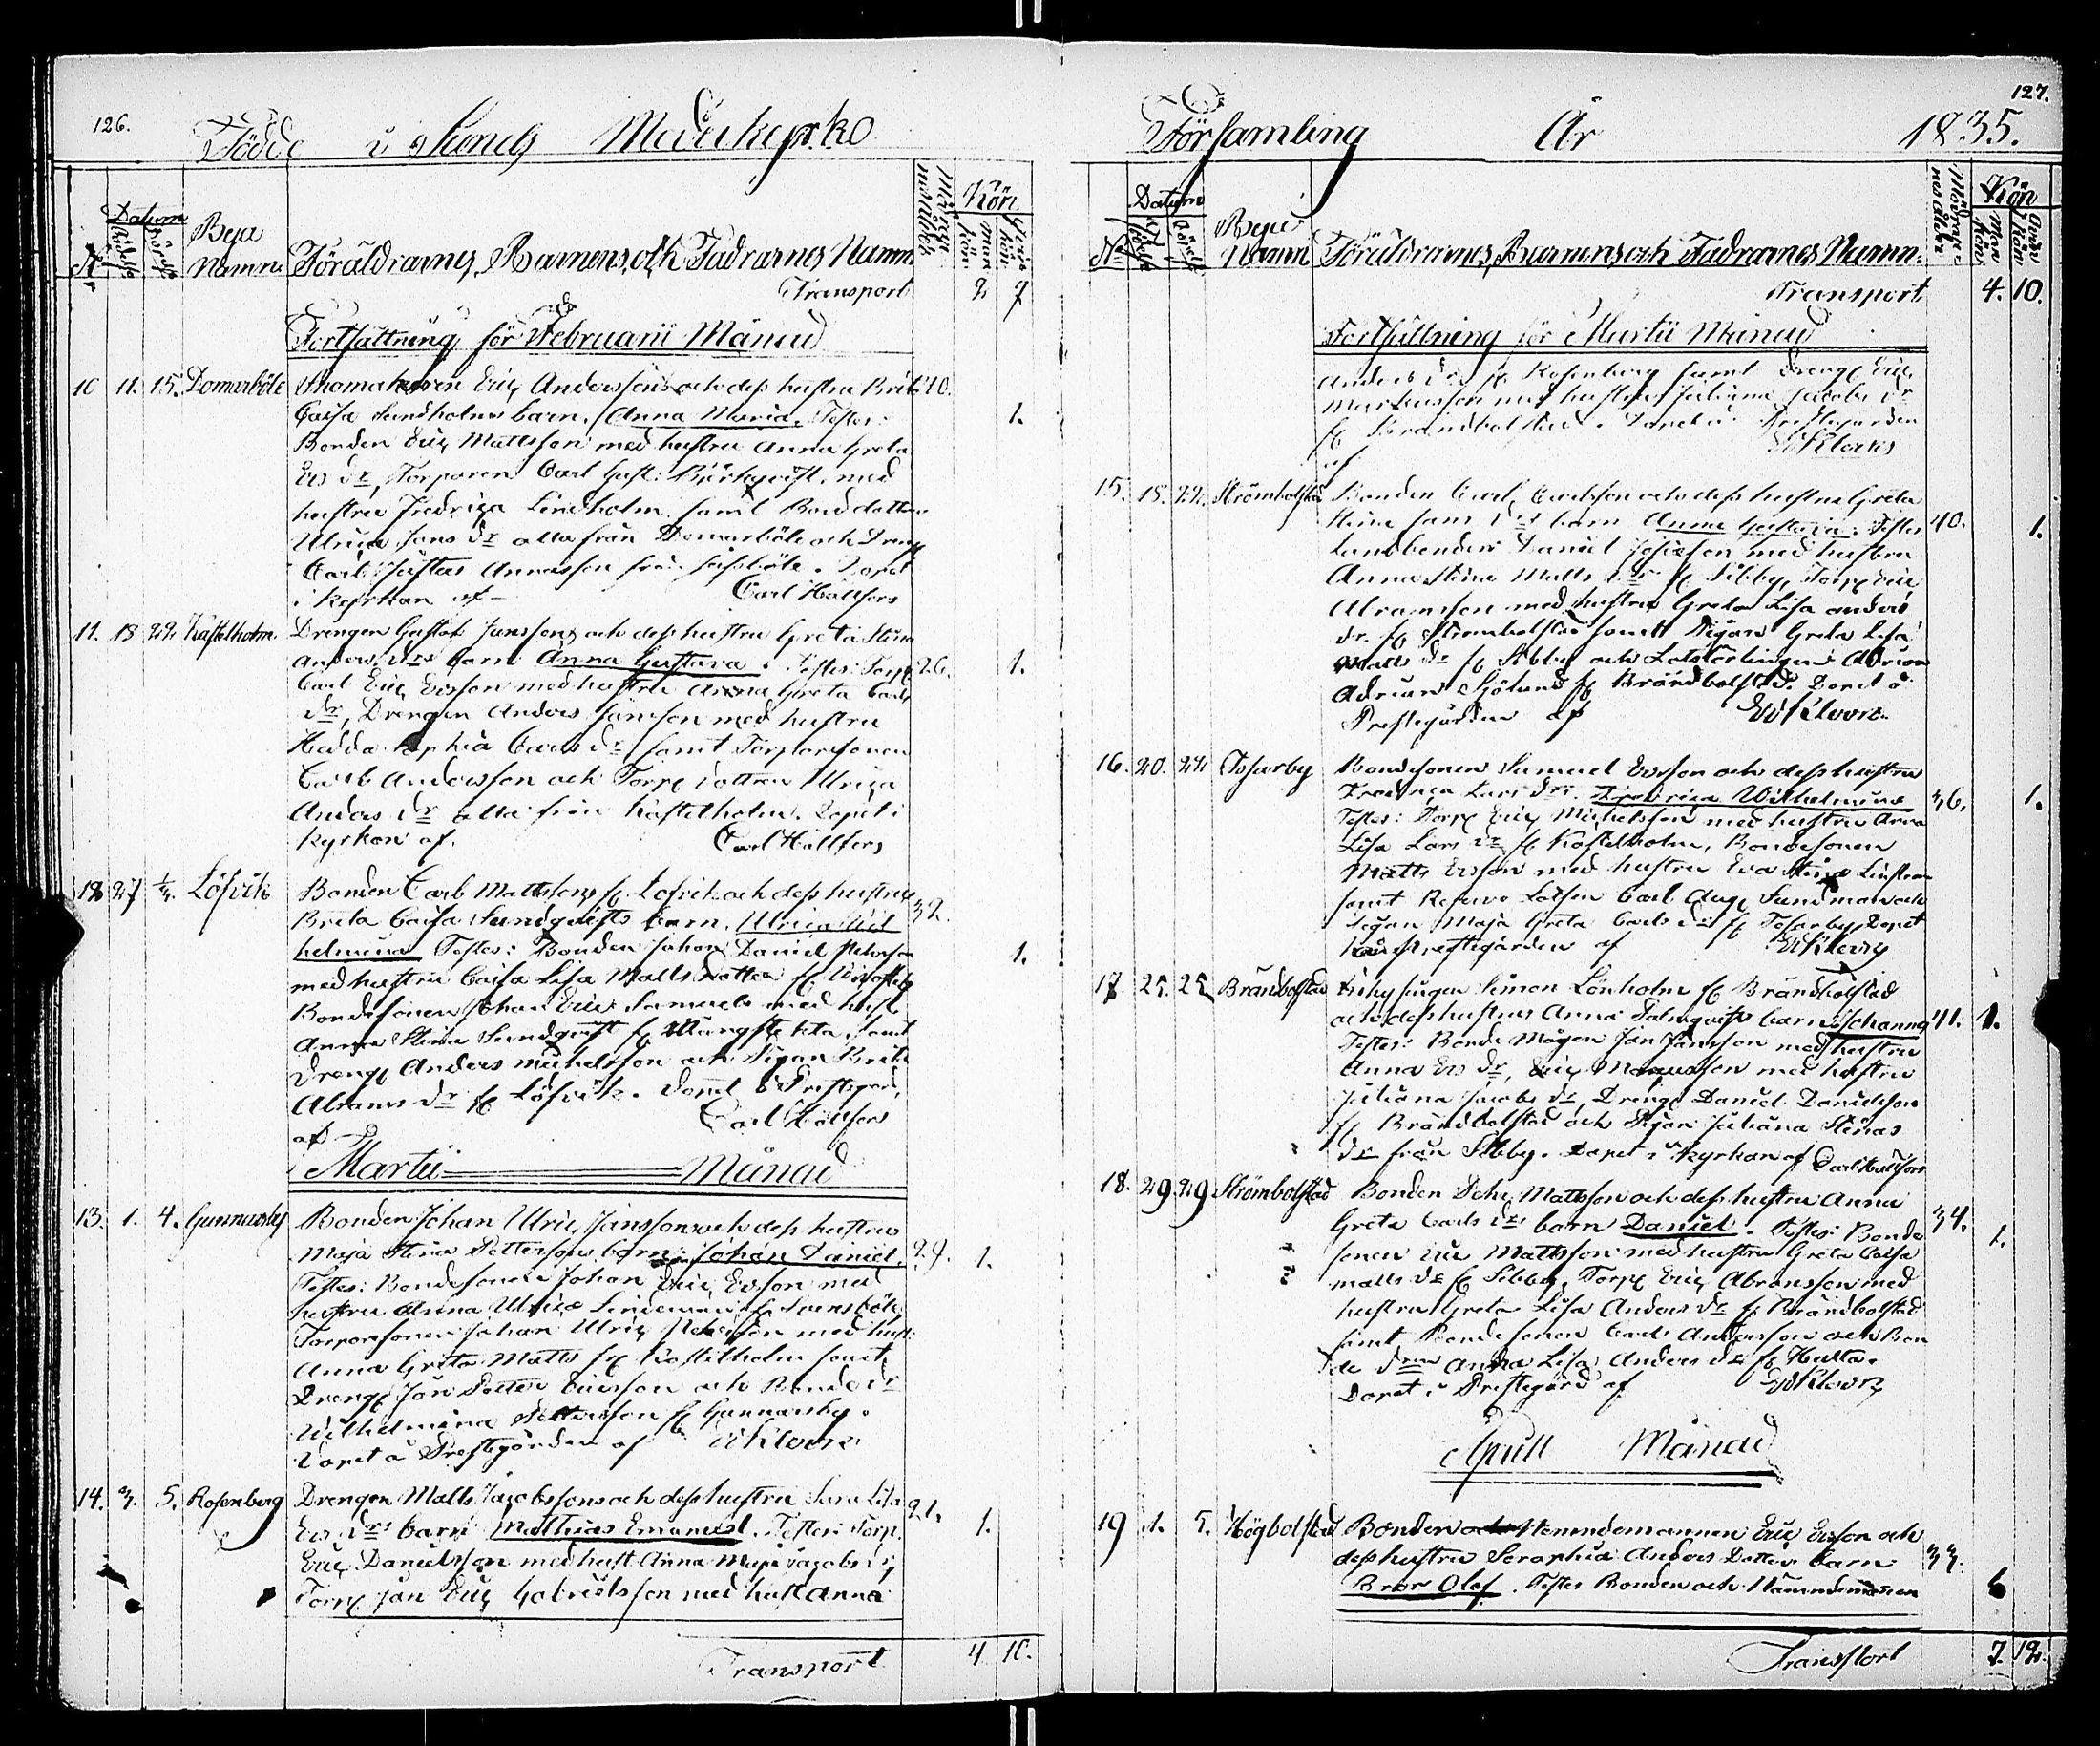 126.
Födde i Sunds Moderkyrko
N:o
Datum
Födelse
Döpelse
Bya
Namn
Föräldrarnes, Barnens, och Fadrarnes Namn
Kön
Man kön
Transport 2 7
Fortsättning för Februarii Månad
10 11. 15. Domarböle Skomakaren Eric Anderssons och dess hustru Brita 40.
Caisa Sundholms barn. Anna Maria. Testes: 1.
Bonden Eric Mattsson med hustru Anna Greta
Ers dr, Torparen Carl Gust: Björkqvist, med
hustru Fredrica Lindholm samt Bonddottren
Ulrica Jans dr alla från Domarböle och Dreng
Carl Andersson från . Döpt
i kyrkan af Carl Hällfors
11. 18 22. Kastelholm. Drengen Gustaf Janssons och dess hustru Greta Stina
Anders drs barn Anna Gustava. Testes: Torp 26. 1.
Carl Eric Ersson med hustru Anna Greta Carls
dr, Drengen Anders Jansson med hustru
Hedda Sophia Carls dr samt Torparesonen
Carl Andersson och Torp dottren Ulrica
Anders dr alla från Kastelholm. Döpt i
kyrkan af. Carl Hällfors
12 27 1/3. Löfvik Bonden Carl Mattssons fr Löfvik och dess hustru
Brita Caisa Sundqvists barn. Ulrica Wil 32.
helmina Testes: Bonden Johan Daniel Petersson 1.
med hustru Caisa Lisa Matts dotter fr
Bondesonen Johan Eric Samuels med hust
Anna Stina Sundqvist fr Wängsteckta samt
Dreng Anders Michelsson och Pigan Brita
Abrams dr fr Löfvik. Döpt i Prestegård
af Carl Hällfors
Martii Månad
13. 1. 4. Gunnarsby Bonden Johan Ulric Janssons och dess hustru
Maja Stina Pettersons barn: Johan Daniel. 29. 1.
Testes: Bondesonen Johan Eric Ersson med
hustru Anna Ulrica Lindeman fr Svensböle
Torparesonen Johan Ulric Petersson med hust:
Anna Greta Matts fr Kastelholm samt
Dreng Jan Petter Ericsson och Bonde dr
Wilhelmina Pettersson fr Gunnarsby.
Döpt i Prestegården af
14. 3. 5. Rosenberg Drengen Matts Jacobssons och dess hustru Sara Lisa 21.
Ers drs barn Matthias Emanuel. Testes: Torp. 1.
Eric Danielsson med hust Anna Maja Jacobs dr
Torp Jan Eric Gabrielsson med hust Anna
Transport 4 10.
127.
Församling År 1835.
N:o
Datum
Bya
Namn
Föräldrarnes, Barnens och Fadrarnes Namn
Kön
Transport 4. 10.
Fortsättning för Martii Månad
Anders dr fr Rosenberg samt Dreng Eric
Markusson med hustru Juliana Jacobs dr
fr Brändbolstad. Döpt i Prestegården
af
15. 18. 22. Strömbolstad Bonden Carl Carlsson och dess hustru Greta
Stina Jans drs barn Anna Gustava. Testes 40. 1.
Landbonden Daniel Josefsson med hustru
Anna Stina Matts dr fr Sibby, Torp Eric
Abramsson med hustru Greta Lisa Anders
dr. fr Strömbolstad samt Pigan Greta Lisa
Matts dr fr Sibby och Lotslärlingen Adrian
Adrian Sjölund fr Brändbolstad. Döpt i
Prestegården af
16. 20. 22 Tosarby Bondesonen Samuel Ersson och dess hustru
Fredrica Lars drs. Fredrica Wilhelmina 36. 1.
Testes: Torp Eric Michelsson med hustru Anna
Lisa Lars dr fr Kastelholm, Bondesonen
Matts Ersson med hustru Eva Stina
samt Reserv Lotsen Carl Aug Sundman och
Pigan Maja Greta Carls dr fr Tosarby. Döpt
Prestegården af
17. 25. 25 Brändbolstad Simon Lönholm fr Brändbolstad
och dess hustrus Anna Palmqvists barn Johannes 41. 1.
Testes: Bonde Mågen Jan Jansson med hustru
Anna Ers dr, Eric Marcusson med hustru
Juliana Jacobs dr, Dreng Daniel Danielsson
fr Brändbolstad och Pigan Juliana
dr från Sibby. Döpt i Kyrkan af Carl Hällfors
18. 29. 29 Strömbolstad Bonden Pehr Mattsson och dess hustru Anna
Greta Carls drs barn Daniel. Testes: Bonde 34. 1.
sonen Eric Mattsson med hustru Greta Caisa
Matts dr fr Sibby, Torp Eric Abramsson med
hustru Greta Lisa Anders dr fr Brändbolstad
samt Bondesonen Carl Andersson och Bon
de drn Anna Lisa Anders dr fr Hulta.
Döpt i Prestegård af
Aprill Månad
19 1. 5. Högbolstad Bonden och Nemndemannen Eric Ersson och
dess hustru Seraphia Anders Dotters barn 33.
Bror Olof. Testes Bonden och Nämndemannen
Transport 7. 12.